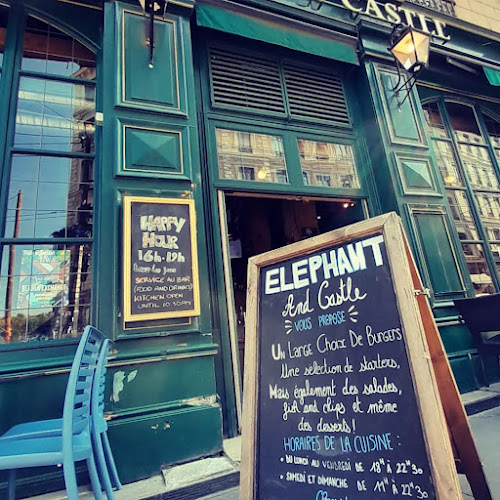 CASTLE
HAPPY
HOUR
16h-19h
SERVICE AU BAR
(FOOD AND DRINKS)
KITCHEN OPEN
UNTIL 10:30PM
ELEPHANT
And Castle
VOUS PROPOSE
UN LARGE CHOIX DE BURGERS
Une sélection de starters,
Mais également des salades,
fish and chips et même
des desserts!
HORAIRES DE LA CUISINE :
• DU LUNDI AU VENDREDI DE 18H À 22H30
• SAMEDI ET DIMANCHE DE 11H À 22H30